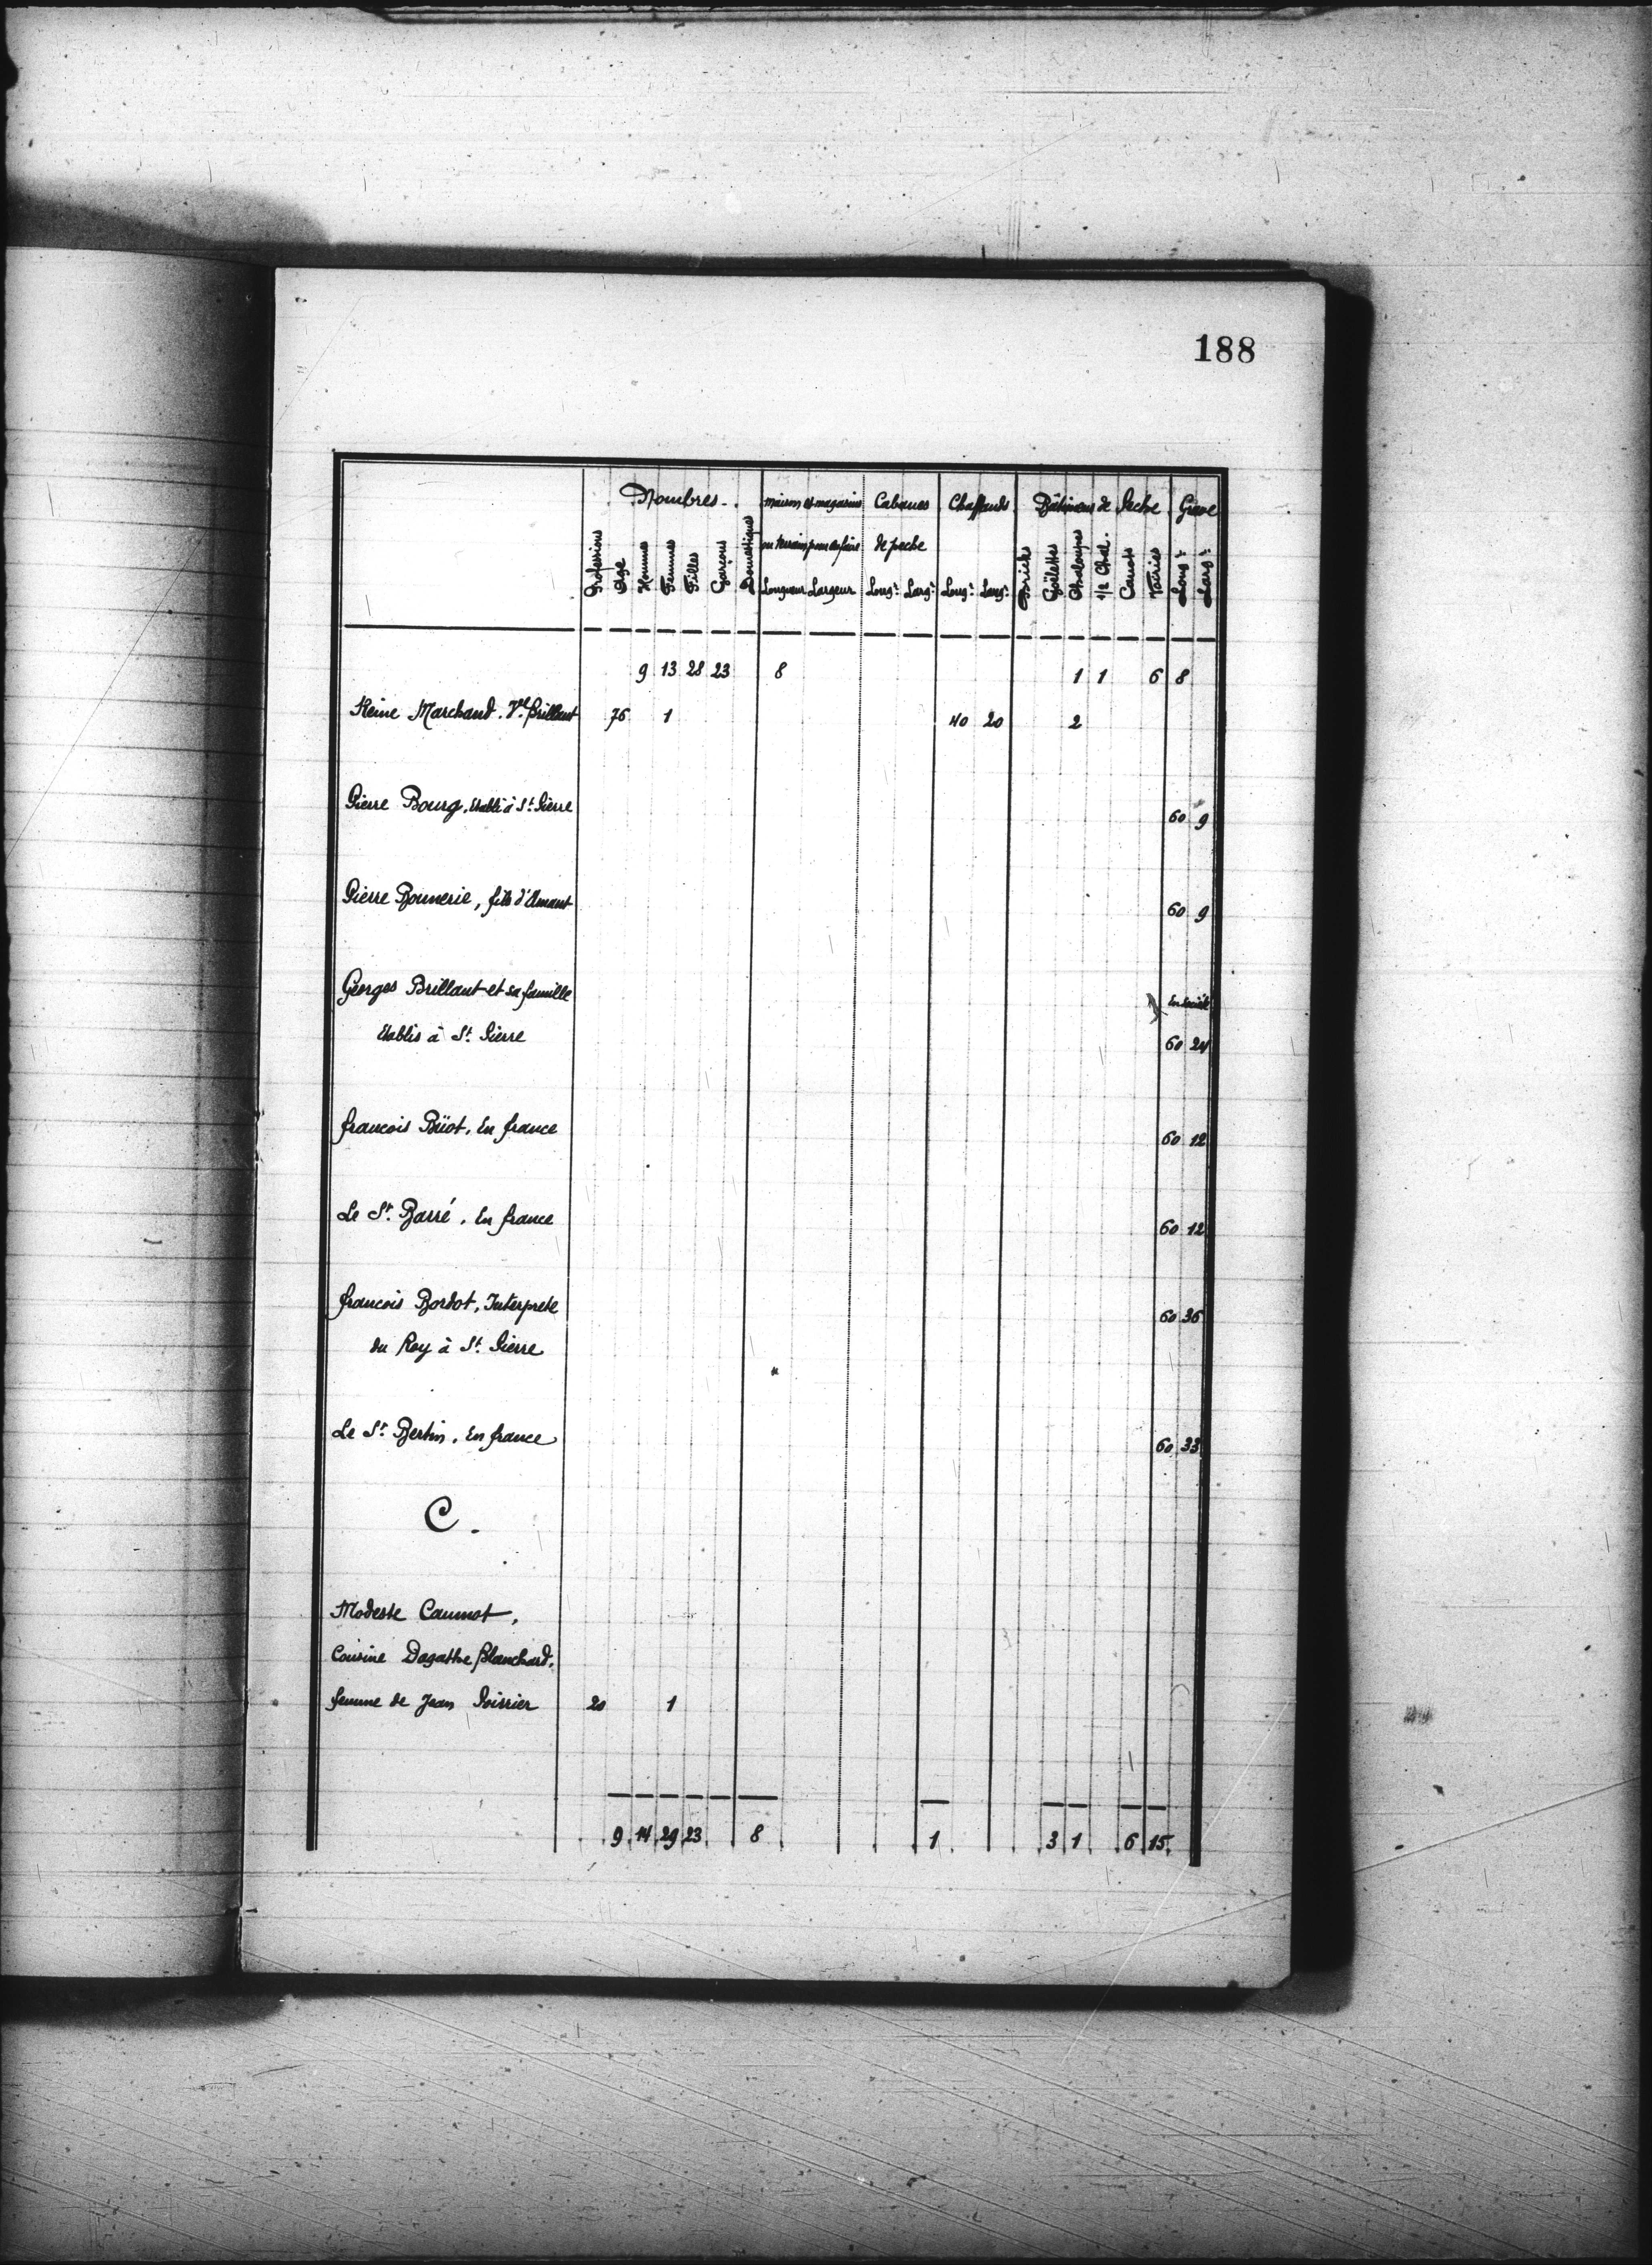 188
Nombres. Maison et magasins Cabanes Chaffauds Bâtimens de Peche Grave
ou terrain pour en faire de peche
Professions Age Hommes Femmes Filles Garçons Domestiques Longueur Largeur Long.r Larg.r Long.r Larg.r Bricks Goëlettes Chaloupes 1/2 Chal. Canots Vairies Long.r Larg.r
9 13 28 23 8 1 1 6 8
Reine Marchand. V.ve Brillant 76 1 40 20 2
Pierre Bourg, Etabli à S.t Pierre 60 9
Pierre Bonnerie, fils d'Amant 60 9
Georges Brillant et sa famille En société
Etablis à S.t Pierre 60 24
francois Büot, En france 60 12
Le S.r Barré, En france 60 12
francois Bordot, Interprete 60 36
du Roy à S.t Pierre
Le S.r Bertin, En france 60 33
C.
Modeste Caumot,
Cousine Dagathe Blanchard,
femme de Jean Poirrier 20 1
9 14 29 23 8 1 3 1 6 15